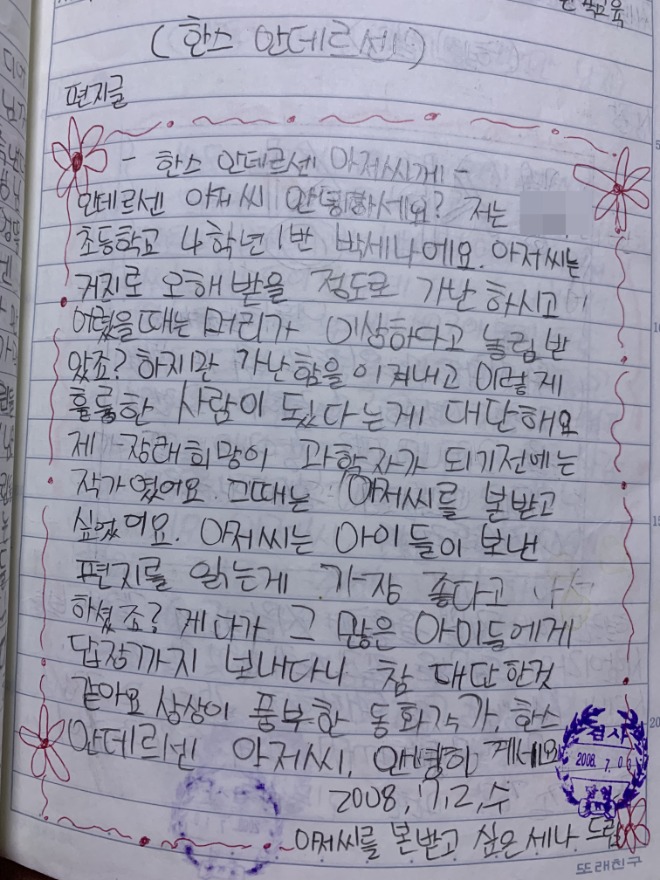 (한스 안데르센)
편지글
- 한스 안데르센 아저씨께 -
안데르센 아저씨 안녕하세요? 저는
초등학교 4학년 1반 박세나에요. 아저씨는
거지로 오해 받을 정도로 가난 하시고
어렸을때는 머리가 이상하다고 놀림 받
았죠? 하지만 가난함을 이겨내고 이렇게
훌륭한 사람이 됬다는게 대단해요
제 장래희망이 과학자가 되기전에는
작가였어요. 그때는 아저씨를 본받고
싶었어요. 아저씨는 아이들이 보낸
편지를 읽는게 가장 좋다고
하셨죠? 게다가 그 많은 아이들에게
답장까지 보내다니 참 대단한것
같아요 상상이 풍부한 동화작가, 한스
안데르센 아저씨, 안녕히 계세요
2008, 7, 2, 수
아저씨를 본받고 싶은 세나 드림
검사
2008. 7. 0
또래친구